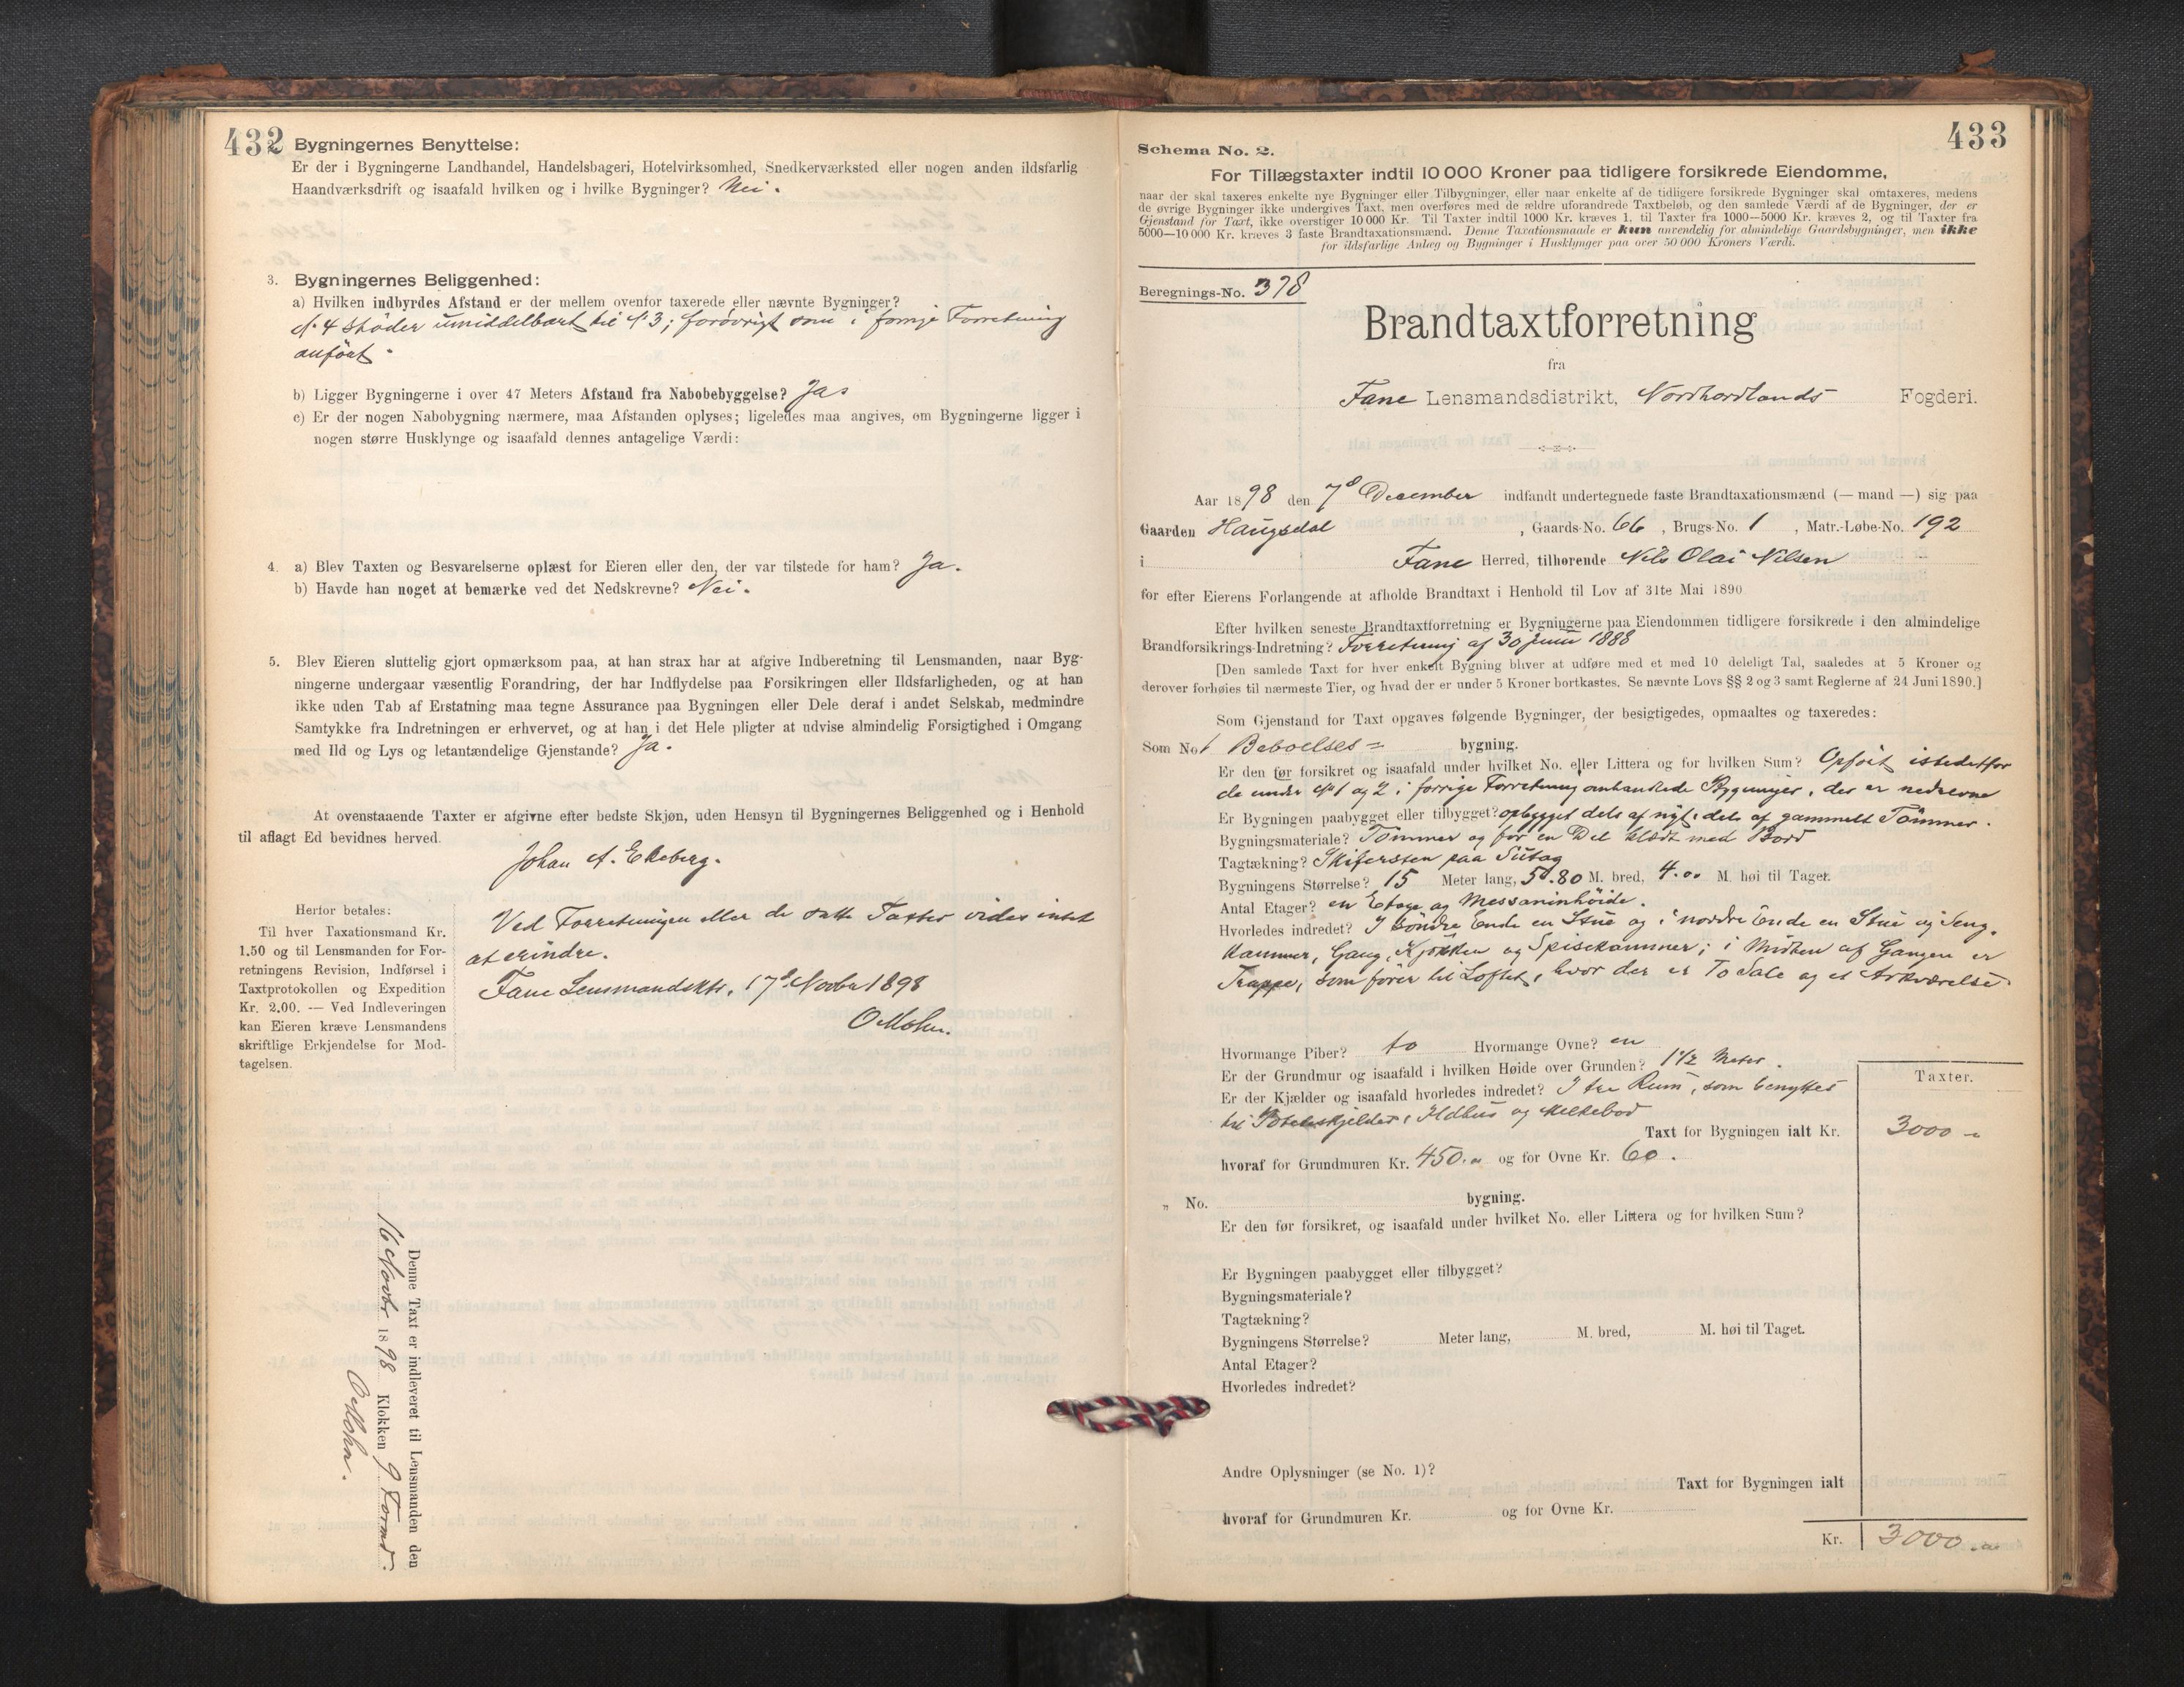 432
Bygningernes Benyttelse:
Er der i Bygningerne Landhandel, Handelsbageri, Hotelvirksomhed, Snedkerværksted eller nogen anden ildsfarlig
Haandværksdrift og isaafald hvilken og i hvilke Bygninger? Nei.
3. Bygningernes Beliggenhed:
a) Hvilken indbyrdes Afstand er der mellem ovenfor taxerede eller nævnte Bygninger?
N. 4 støder umiddelbart til N 3; forøvrigt som i forrige Forretning
anført.
b) Ligger Bygningerne i over 47 Meters Afstand fra Nabobebyggelse? Ja
c) Er der nogen Nabobygning nærmere, maa Afstanden oplyses; ligeledes maa angives, om Bygningerne ligger i
nogen større Husklynge og isaafald dennes antagelige Værdi:
4. a) Blev Taxten og Besvarelserne oplæst for Eieren eller den, der var tilstede for ham? Ja.
b) Havde han noget at bemærke ved det Nedskrevne? Nei.
5. Blev Eieren sluttelig gjort opmærksom paa, at han strax har at afgive Indberetning til Lensmanden, naar Byg-
ningerne undergaar væsentlig Forandring, der har Indflydelse paa Forsikringen eller Ildsfarligheden, og at han
ikke uden Tab af Erstatning maa tegne Assurance paa Bygningen eller Dele deraf i andet Selskab, medmindre
Samtykke fra Indretningen er erhvervet, og at han i det Hele pligter at udvise almindelig Forsigtighed i Omgang
med Ild og Lys og letantændelige Gjenstande? Ja.
At ovenstaaende Taxter er afgivne efter bedste Skjøn, uden Hensyn til Bygningernes Beliggenhed og i Henhold
til aflagt Ed bevidnes herved.
Johan A. Ekeberg.
Herfor betales:
Til hver Taxationsmand Kr.
1.50 og til Lensmanden for For-
retningens Revision, Indførsel i
Taxtprotokollen og Expedition
Kr. 2.00. — Ved Indleveringen
kan Eieren kræve Lensmandens
skriftlige Erkjendelse for Mod-
tagelsen.
Ved Forretningen eller de satte Taxter vides intet
at erindre.
Fane Lensmandsktr. 17d Novbr 1898
O Mohn.
Denne Taxt er indleveret til Lensmanden den
16 Novbr 1898 Klokken 9 Formd.
O Mohn.
433
Schema No. 2.
For Tillægstaxter indtil 10 000 Kroner paa tidligere forsikrede Eiendomme,
naar der skal taxeres enkelte nye Bygninger eller Tilbygninger, eller naar enkelte af de tidligere forsikrede Bygninger skal omtaxeres, medens
de øvrige Bygninger ikke undergives Taxt, men overføres med de ældre uforandrede Taxtbeløb, og den samlede Værdi af de Bygninger, der er
Gjenstand for Taxt, ikke overstiger 10 000 Kr. Til Taxter indtil 1000 Kr. kræves 1, til Taxter fra 1000—5000 Kr. kræves 2, og til Taxter fra
5000—10 000 Kr. kræves 3 faste Brandtaxationsmænd. Denne Taxationsmaade er kun anvendelig for almindelige Gaardsbygninger, men ikke
for ildsfarlige Anlæg og Bygninger i Husklynger paa over 50 000 Kroners Værdi.
Beregnings-No. 378
Brandtaxtforretning
fra
Fane Lensmandsdistrikt, Nordhordlands Fogderi.
Aar 1898 den 7d December indfandt undertegnede faste Brandtaxationsmænd (— mand —) sig paa
Gaarden Haugsdal, Gaards-No. 66, Brugs-No. 1, Matr.-Løbe-No. 192
i Fane Herred, tilhørende Nils Olai Nilsen
for efter Eierens Forlangende at afholde Brandtaxt i Henhold til Lov af 31te Mai 1890
Efter hvilken seneste Brandtaxtforretning er Bygningerne paa Eiendommen tidligere forsikrede i den almindelige
Brandforsikrings-Indretning? Forretning af 30 Juni 1888
[Den samlede Taxt for hver enkelt Bygning bliver at udføre med et med 10 deleligt Tal, saaledes at 5 Kroner og
derover forhøies til nærmeste Tier, og hvad der er under 5 Kroner bortkastes. Se nævnte Lovs §§ 2 og 3 samt Reglerne af 24 Juni 1890.]
Som Gjenstand for Taxt opgaves følgende Bygninger, der besigtigedes, opmaaltes og taxeredes:
Som No 1 Beboelses= bygning.
Er den før forsikret og isaafald under hvilket No. eller Littera og for hvilken Sum? Opført istedetfor
de under No 1 og 2 i forrige Forretning omhandlede Bygninger, der er nedrevne
Er Bygningen paabygget eller tilbygget? opbygget dels af nyt, dels af gammelt Tømmer.
Bygningsmateriale? Tømmer og for en Del klædt med Bord
Tagtækning? Skifersten paa Sutag
Bygningens Størrelse? 15 Meter lang, 5.80 M. bred, 4.00 M. høi til Taget.
Antal Etager? en Etage og Messaninhøide.
Hvorledes indredet? I søndre Ende en Stue og i nordre Ende en Stue og Seng-
kammer, Gang, Kjøkken og Spisekammer; i Midten af Gangen er
Trappe, som fører til Loftet, hvor der er To Sale og et Arkværelse.
Hvormange Piber? to Hvormange Ovne? en
Er der Grundmur og isaafald i hvilken Høide over Grunden? 1 1/2 Meter.
Er der Kjælder og isaafald hvorledes indredet? I tre Rum, som benyttes
til Potetskjelder, Ildhus og Melkebod
Taxter.
Taxt for Bygningen ialt Kr. 3000 -
hvoraf for Grundmuren Kr. 450.- og for Ovne Kr. 60.
" No. bygning.
Er den før forsikret, og isaafald under hvilket No. eller Littera og for hvilken Sum?
Er Bygningen paabygget eller tilbygget?
Bygningsmateriale?
Tagtækning?
Bygningens Størrelse? Meter lang, M. bred, M. høi til Taget.
Antal Etager?
Hvorledes indredet?
Andre Oplysninger (se No. 1)?
Taxt for Bygningen ialt
hvoraf for Grundmuren Kr. og for Ovne Kr.
Kr. 3000.-